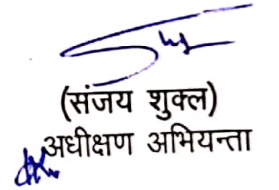 (संजय शुक्ल)
अधीक्षण अभियन्ता